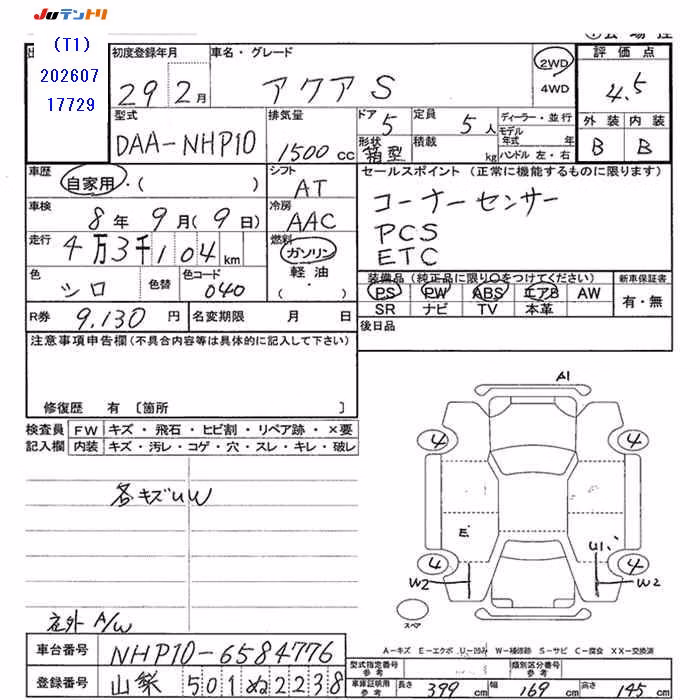 JUテントリ
(T1)
202607
17729
初度登録年月
29 2月
車名・グレード
アクア S
2WD
4WD
評価点
4.5
外装 内装
B B
型式
DAA-NHP10
排気量
1500 cc
ドア
5
形状
箱型
定員
5 人
積載
kg
ディーラー・並行
モデル年式 年
ハンドル 左・右
車歴
自家用・( )
シフト
AT
車検
8年 9月(9日)
冷房
AAC
走行
4万3千104km
燃料
ガソリン
軽油
( ・ )
色
シロ
色替
色コード
040
R券 9,130 円
名変期限 月 日
セールスポイント (正常に機能するものに限ります)
コーナーセンサー
PCS
ETC
装備品 (純正品に限り○をつけてください)
PS PW ABS エアB AW
SR ナビ TV 本革
新車保証書
有・無
後日品
注意事項申告欄(不具合内容等は具体的に記入して下さい)
修復歴 有 〔箇所 〕
検査員 FW キズ・飛石・ヒビ割・リペア跡・×要
記入欄 内装 キズ・汚レ・コゲ・穴・スレ・キレ・破レ
各キズUW
A1
4 4
E
U1
4 4
W2 W2
スペア
左外 A/W
A-キズ E-エクボ U-凹み W-補修跡 S-サビ C-腐食 XX-交換済
車台番号 NHP10-6584776
登録番号 山梨 501ぬ2238
型式指定番号 参考
類別区分番号 参考
車庫証明用 参考 長さ 399 cm 幅 169 cm 高さ 145 cm